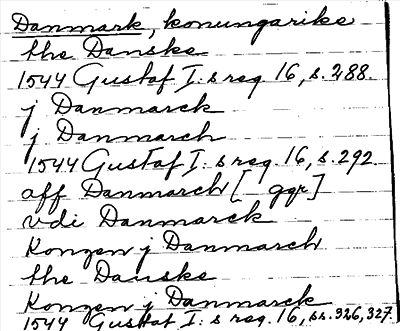 Danmark, konungarike
the Danske
1544 Gustaf I:s reg. 16, s. 288.
j Danmarck
j Danmarch
1544 Gustaf I:s reg. 16, s. 292.
aff Danmarch [- ggr]
vdi Danmarck
Kongen j Danmarch
the Danske
Kongen j Danmarck
1544 Gustaf I:s reg. 16, ss. 326, 327.